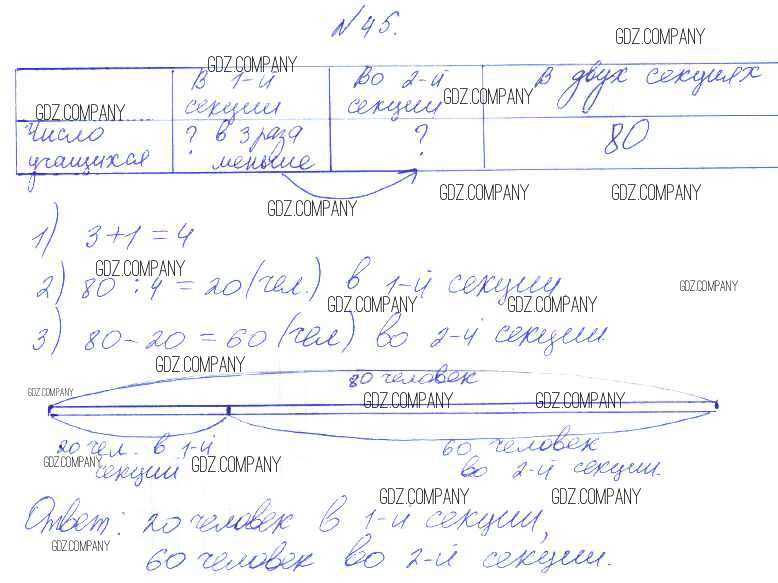 №45.
GDZ.COMPANY
GDZ.COMPANY
В 1-й секции
Во 2-й секции
В двух секциях
GDZ.COMPANY
GDZ.COMPANY
Число учащихся
? в 3 раза меньше
?
80
GDZ.COMPANY
GDZ.COMPANY
GDZ.COMPANY
1) 3+1=4
GDZ.COMPANY
2) 80:4=20(чел.) в 1-й секции
GDZ.COMPANY
GDZ.COMPANY
GDZ.COMPANY
3) 80-20=60(чел) во 2-й секции.
GDZ.COMPANY
80 человек
GDZ.COMPANY
GDZ.COMPANY
GDZ.COMPANY
20 чел. в 1-й секции
60 человек
во 2-й секции.
GDZ.COMPANY
GDZ.COMPANY
GDZ.COMPANY
GDZ.COMPANY
Ответ: 20 человек в 1-й секции,
GDZ.COMPANY
60 человек во 2-й секции.